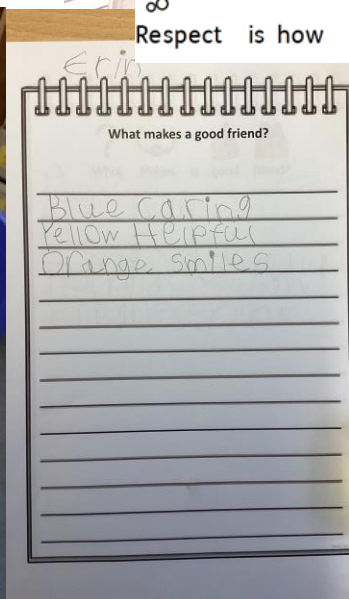 Respect is how
Erin
What makes a good friend?
Blue caring
Yellow Helpful
Orange smiles